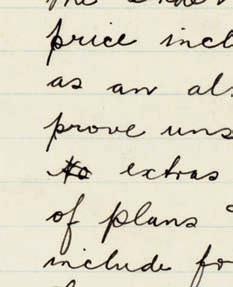 price incl
as an al
prove uns
extras
of plans
include fo